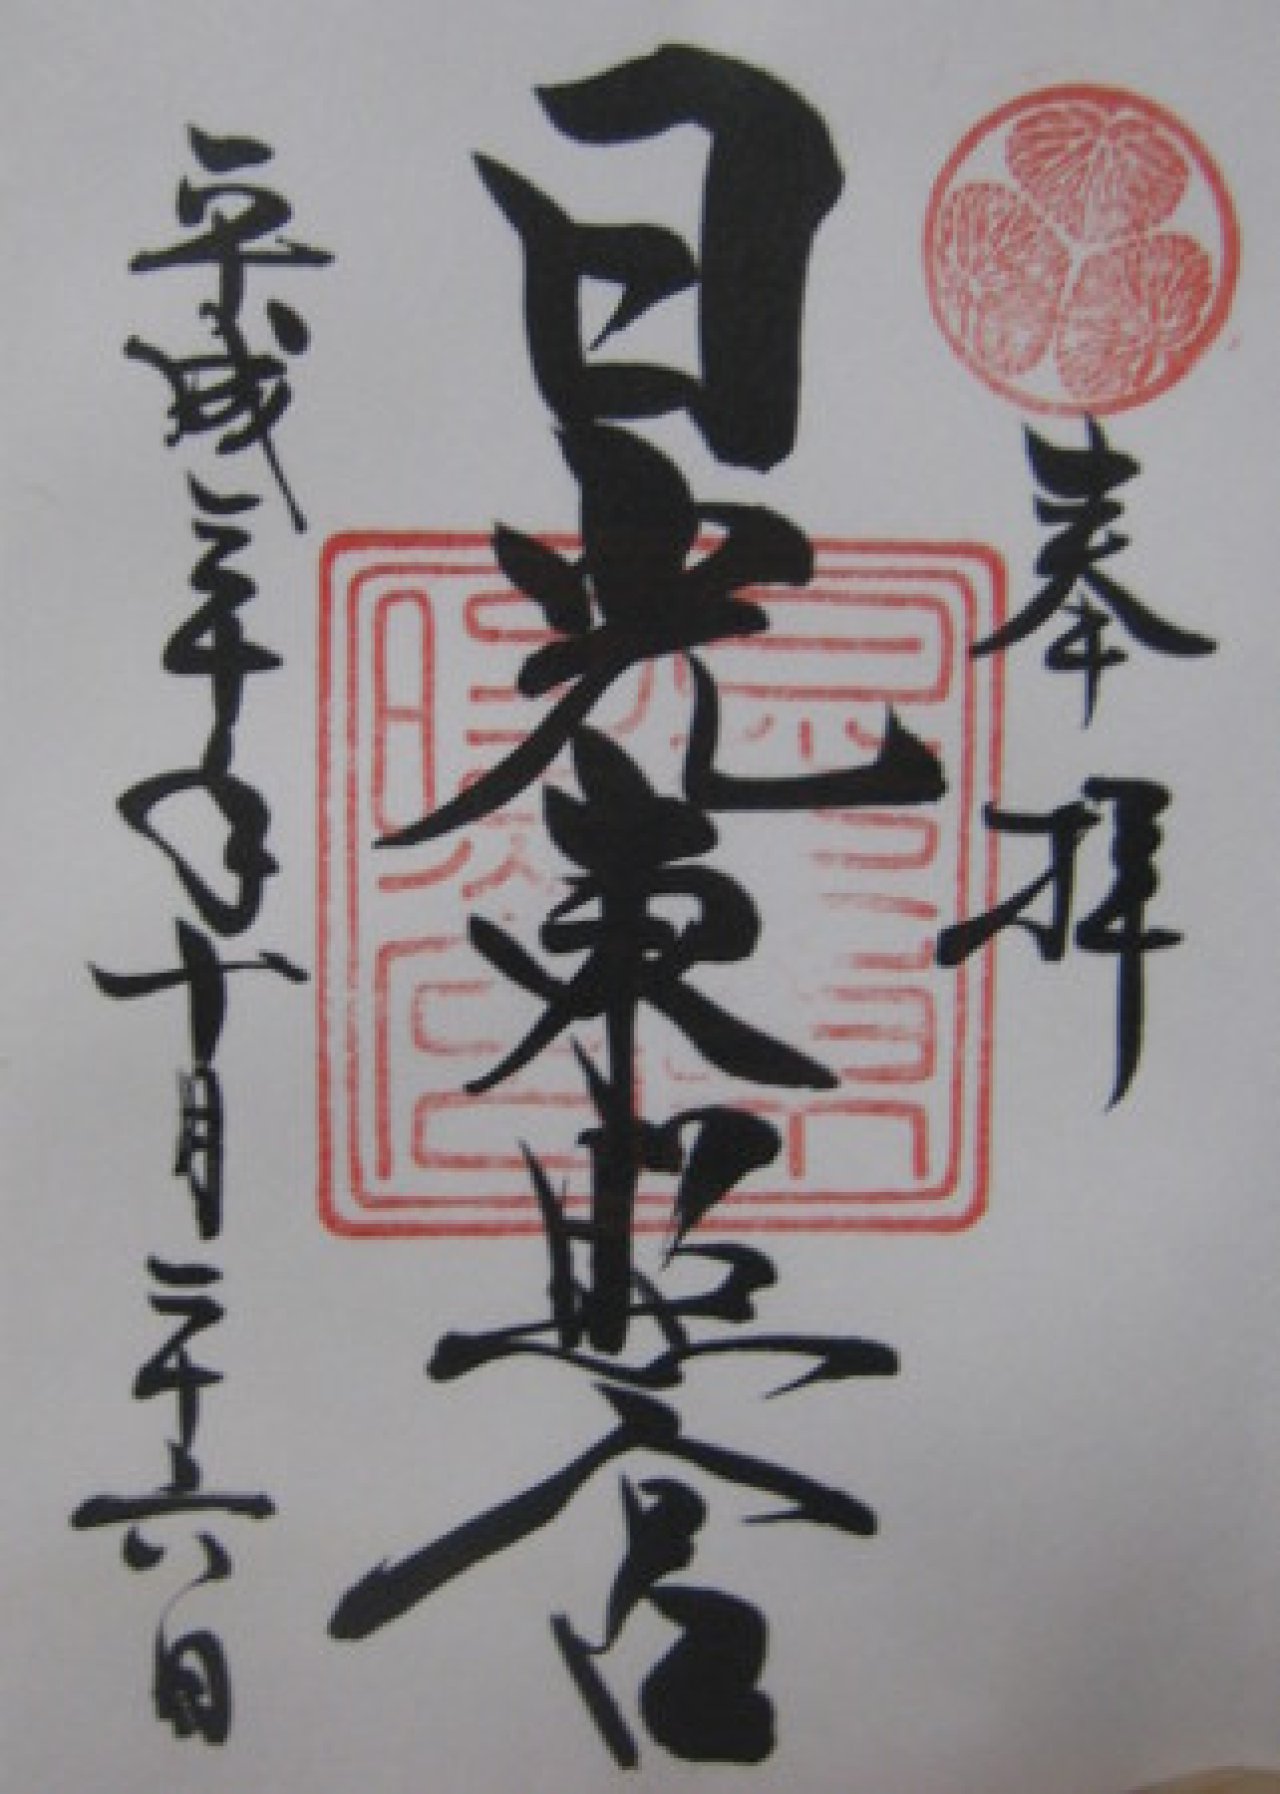 奉拝
日光東照宮
平成二十年十月二十六日